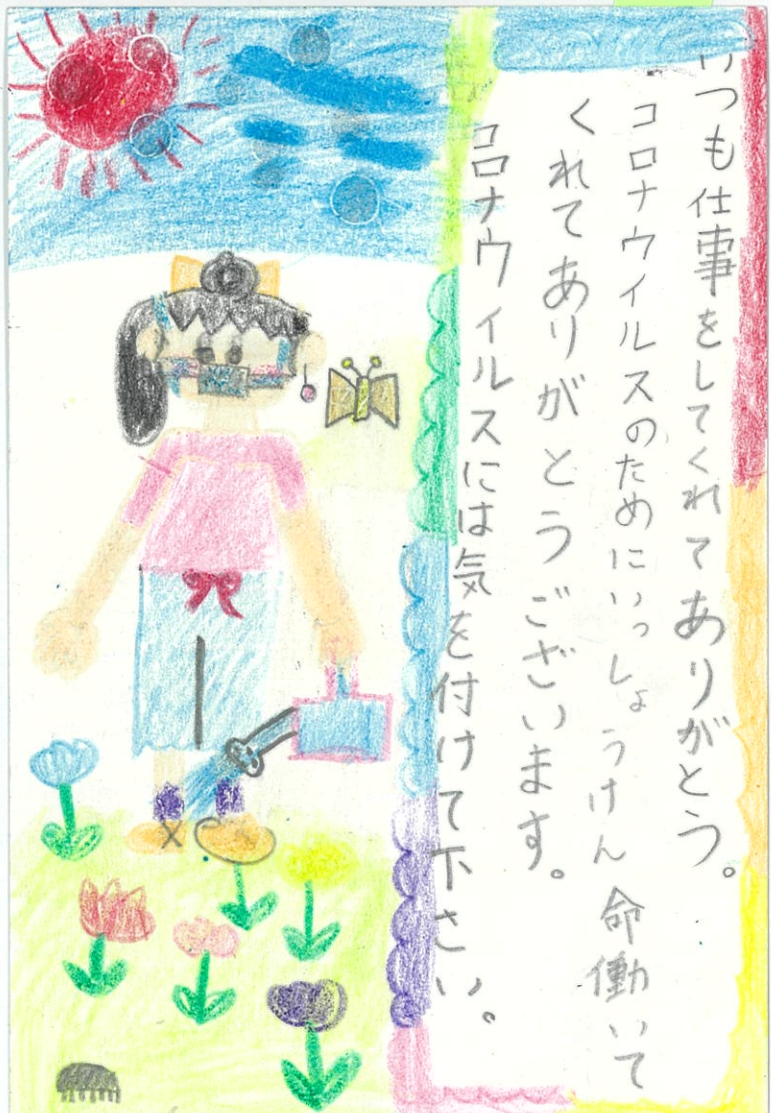 いつも仕事をしてくれてありがとう。
コロナウィルスのためにいっしょうけん命働いて
くれてありがとうございます。
コロナウィルスには気を付けて下さい。